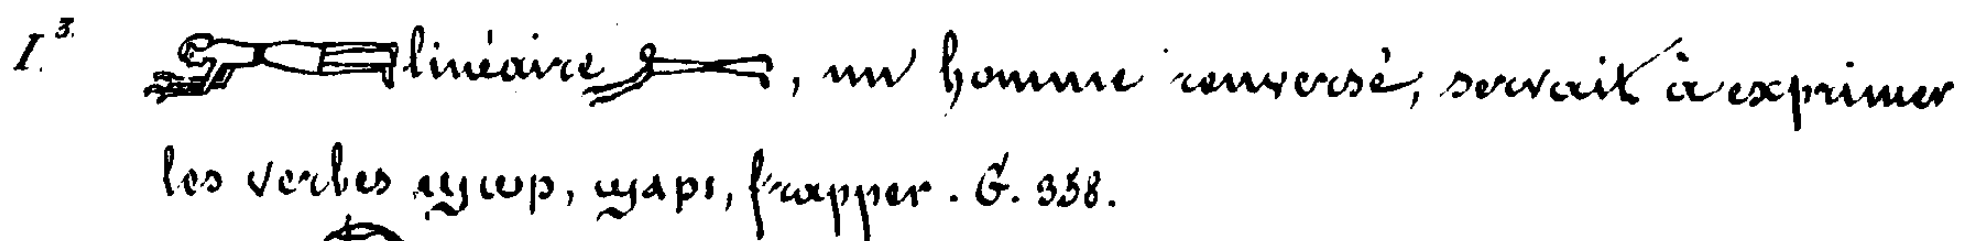 I. 3. linéaire , un homme renversé, servait à exprimer
les verbes ϣⲱⲣ, ϣⲁⲣⲓ, frapper. G. 358.